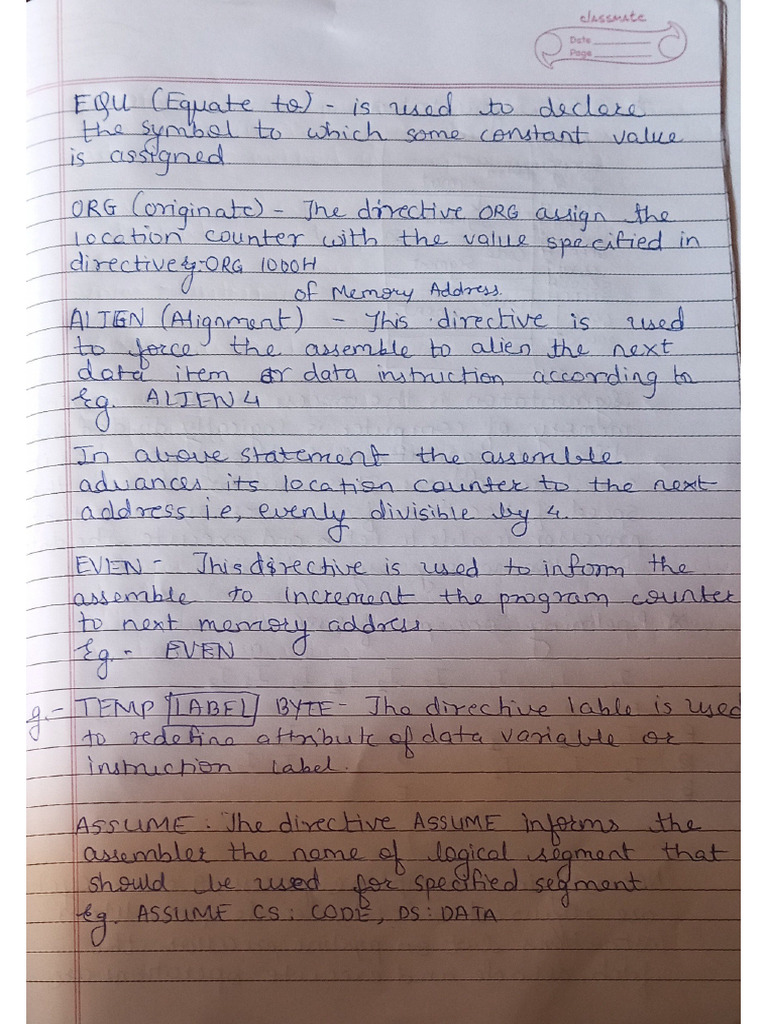 classmate
Date
Page
EQU (Equate to) - is used to declare
the symbol to which some constant value
is assigned
ORG (originate) - The directive ORG assign the
location counter with the value specified in
directive Eg:- ORG 1000H
of Memory Address.
ALIGN (Alignment) - This directive is used
to force the assemble to alien the next
data item or data instruction according to
Eg. ALIEN 4
In above statement the assemble
advances its location counter to the next
address i.e, evenly divisible by 4.
EVEN - This directive is used to inform the
assemble to increment the program counter
to next memory address.
Eg. - EVEN
g. - TEMP LABEL BYTE - The directive lable is used
to redefine attribute of data variable or
instruction label.
ASSUME . The directive ASSUME informs the
assembler the name of logical segment that
should be used for specified segment
Eg. ASSUME CS : CODE, DS : DATA